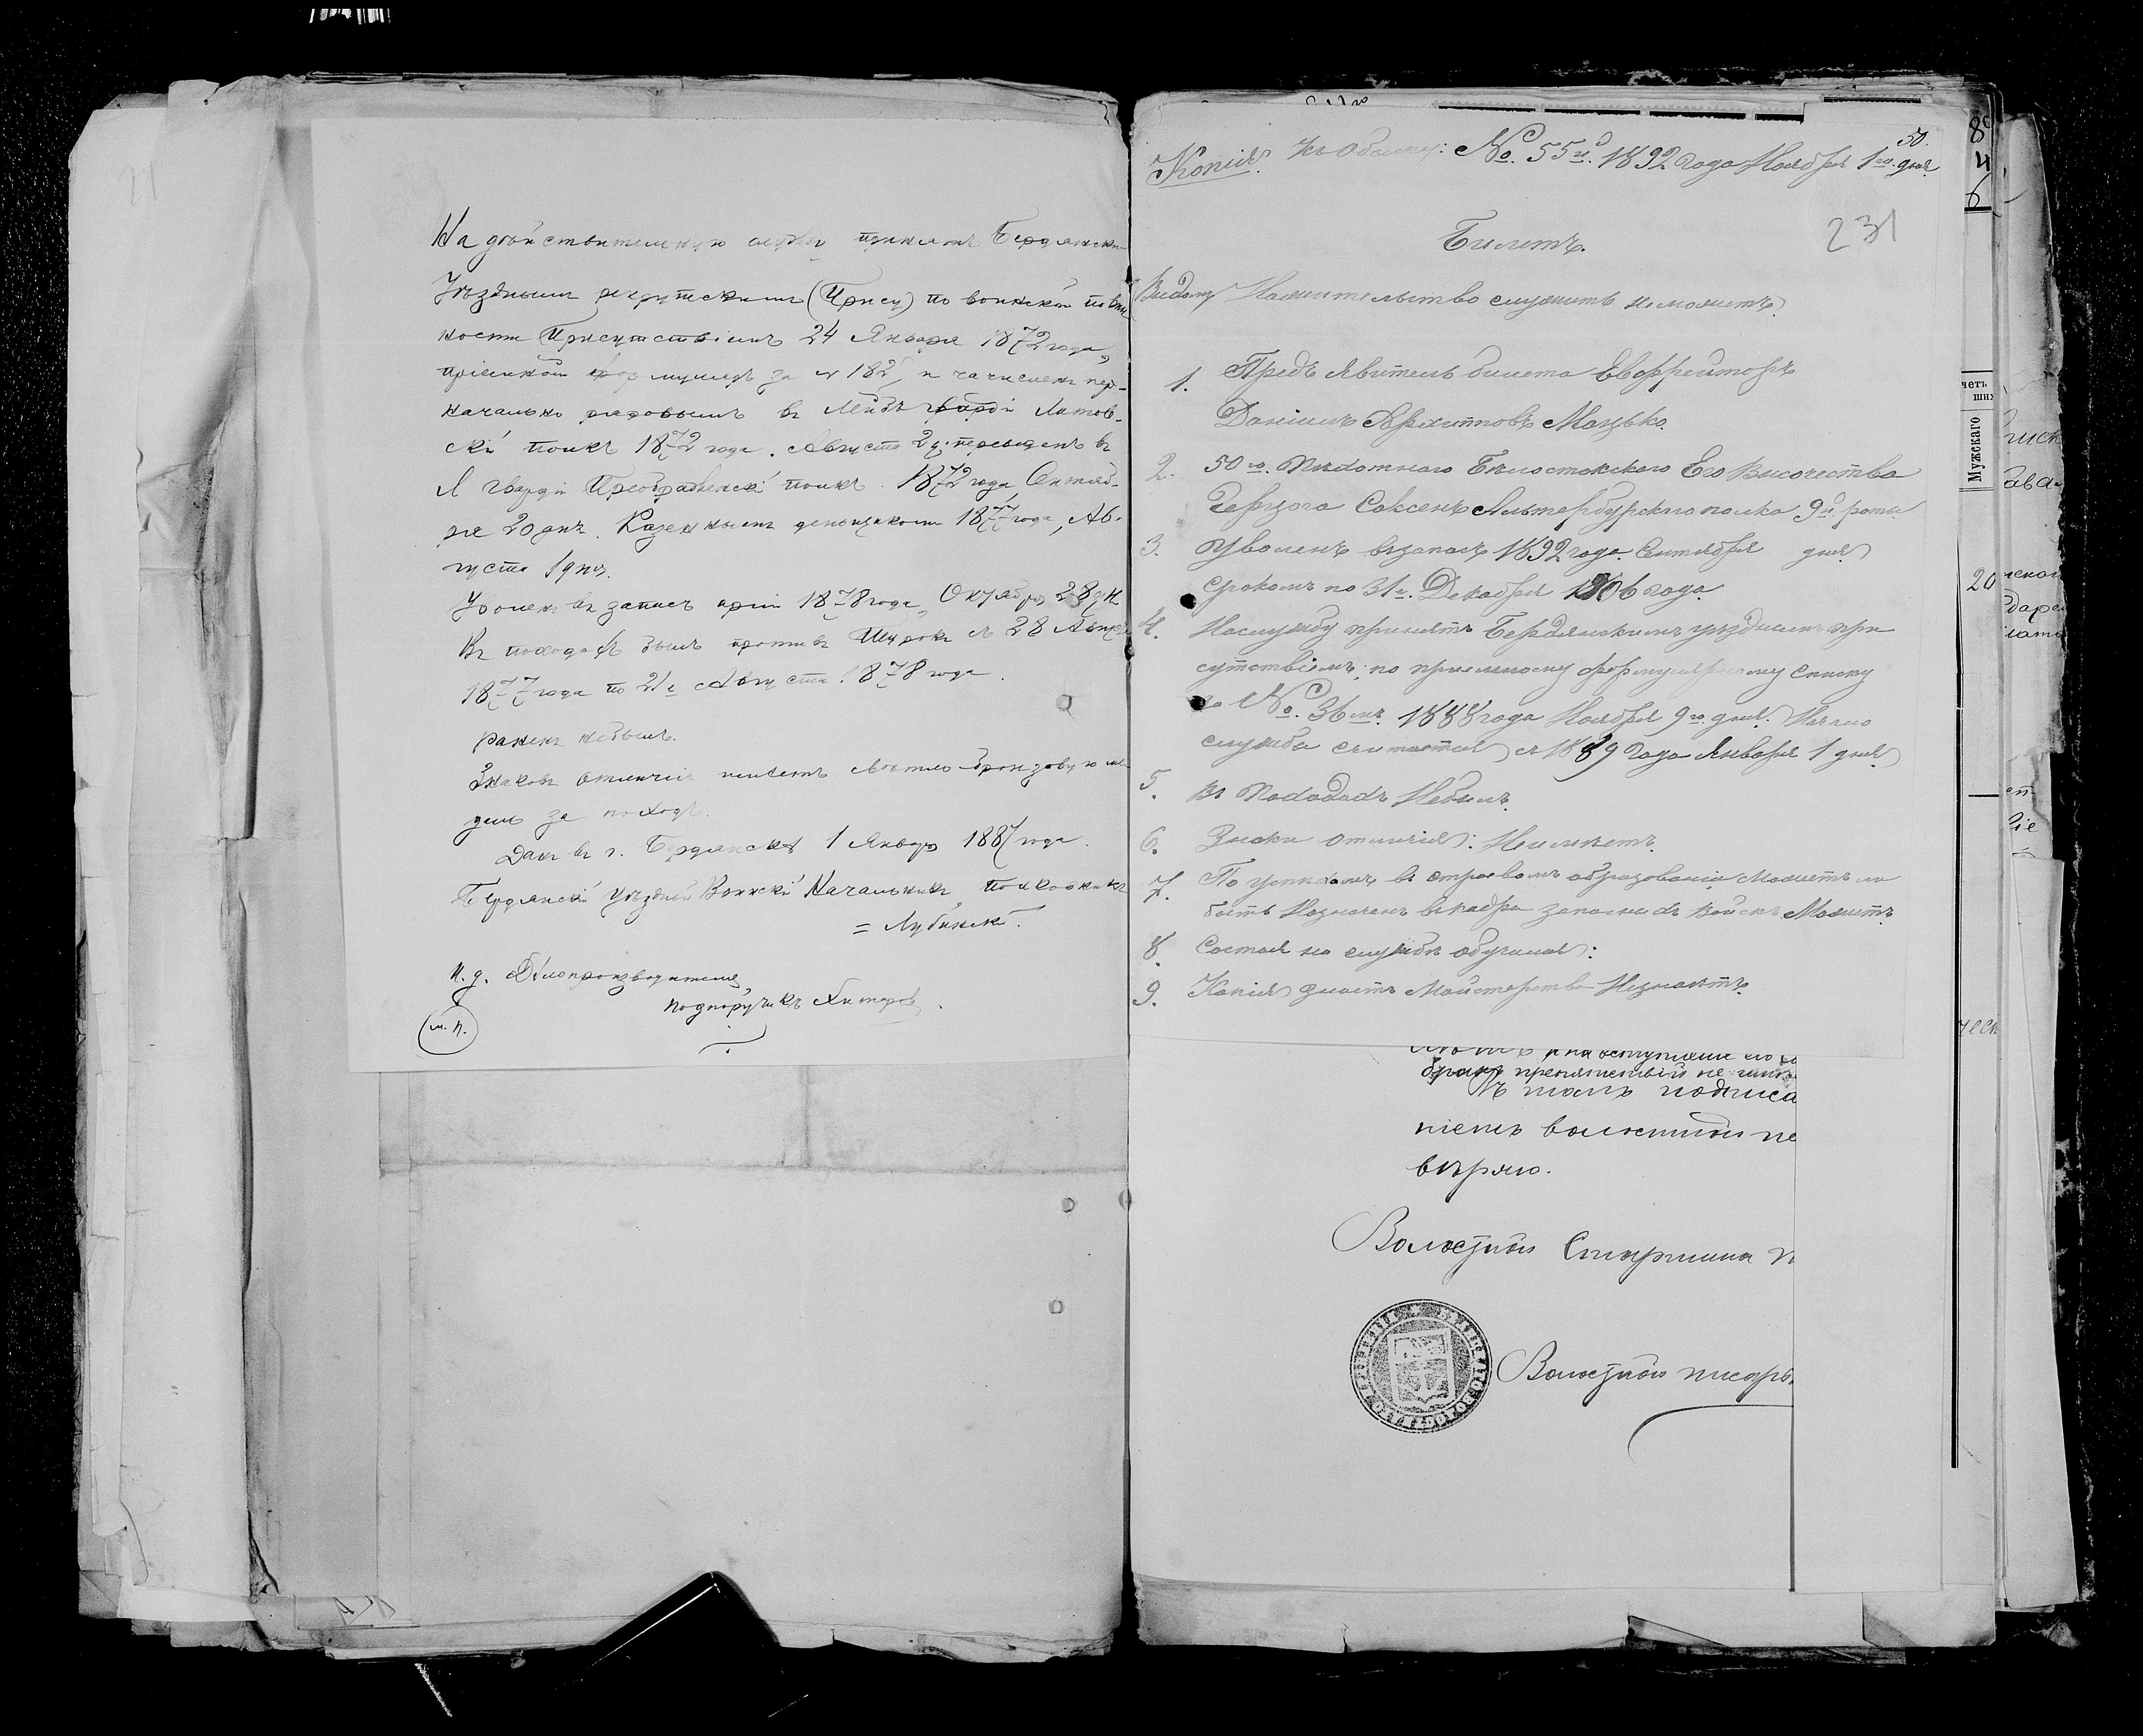 На дѣйствительную службу принятъ Бердянским
Уѣзднымъ рекрутскимъ (Прису) по воинской повин
ности Присутствіемъ 24 Января 1872 года,
пріемной за № 182, и зачисленъ пер-
начально рядовымъ въ Лейбъ гвардіи Литов-
скій полкъ 1872 года. Августа 2 д. переведенъ въ
Л гвардіи Преображенскій полкъ. 1872 года Октяб-
ря 20 дня. Казеннымъ деньщикомъ 1877 года, Ав-
густа 1 дня.
Уволенъ въ запасъ арміи 1878 года, Октября 28 дн
Въ походахъ былъ противъ Турокъ съ 28 Августа
1877 года по 21е Августа 1878 года.
раненъ небылъ.
Знаковъ отличія имѣетъ свѣтло-бронзовую ме
даль за походъ.
Данъ въ г. Бердянскѣ 1 Января 1887 года.
Бердянскій уѣздный Воинскій Начальникъ, полковникъ
= Лубинскій.
И. д. Дѣлопроизводителя
подпоручикъ
м. п.
50.
Копія. къ Обыску: №. 55й. 1892 года Ноября 1го. дня
231
Билетъ.
Видомъ Нажительство служить неможетъ.
1. Предъявитель билета Евфрейторъ
Даніилъ Архиповъ Мацько
2. 50го. Пѣхотнаго Бѣлостокскаго Его Высочества
Герцога Саксенъ Альтербурскаго полка 9й роты
3. Уволенъ взапасъ 1892 года Сентября дня
Срокомъ по 31е. Декабря 1906 года.
4. Наслужбу принятъ Бердянскимъ уѣзднымъ при
сутствіемъ; по пріемному формулярному списку
за №. 36мъ. 1888 года Ноября 9го. дня. Начало
службы считается съ 1889 года Января 1 дня
5. Въ Походахъ Небылъ.
6. Знаки отличія: Неимѣетъ.
7. По успѣхамъ въ строевомъ образованіи Можетъ ли
быть Назначенъ въ кадры запасныхъ войскъ Можетъ.
8. Состоя на службѣ обучался:
9. Какія знаетъ Майстерства Незнаетъ.
вступленіе его въ
бракъ препятствій не
Въ томъ подписа
ніемъ волостной пе
вѣряю.
Волостной Старшина
Волостной писарь
четъ
ших
Мужскаго
20